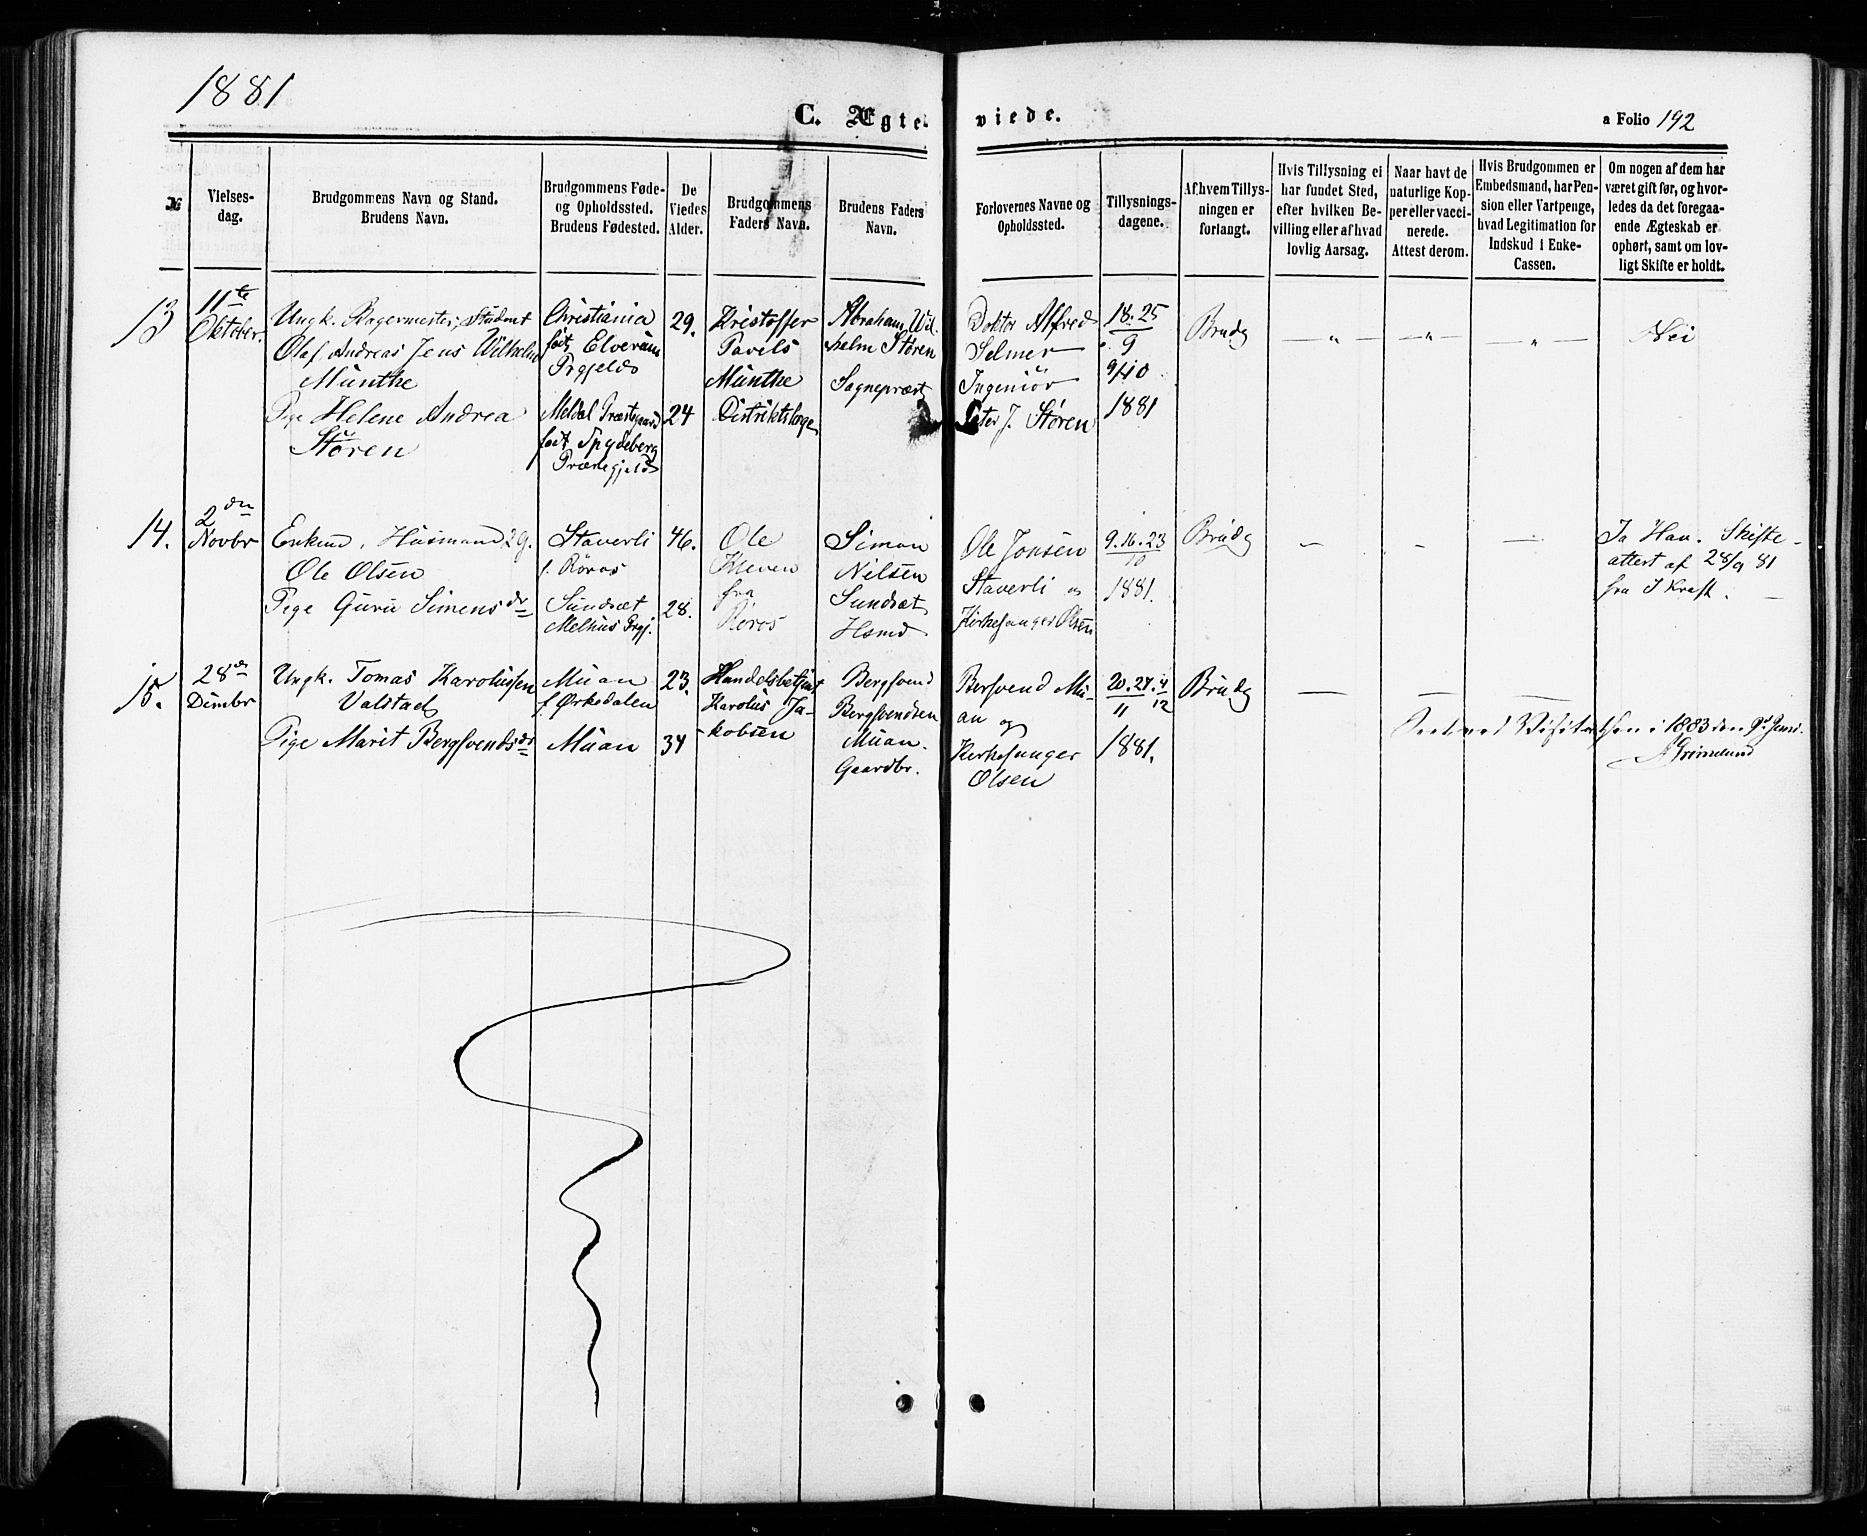 1881
C. Ægte-
viede.
a Folio 192
№
Vielses-
dag.
Brudgommens Navn og Stand.
Brudens Navn.
Brudgommens Føde-
og Opholdssted.
Brudens Fødested.
De
Viedes
Alder.
Brudgommens
Faders Navn.
Brudens Faders
Navn.
Forlovernes Navne og
Opholdssted.
Tillysnings-
dagene.
Af hvem Tillys-
ningen er
forlangt.
Hvis Tillysning ei
har fundet Sted,
efter hvilken Be-
villing eller af hvad
lovlig Aarsag.
Naar havt de
naturlige Kop-
per eller vacci-
nerede.
Attest derom.
Hvis Brudgommen er
Embedsmand, har Pen-
sion eller Vartpenge,
hvad Legitimation for
Indskud i Enke-
Cassen.
Om nogen af dem har
været gift før, og hvor-
ledes da det foregaa-
ende Ægteskab er
ophørt, samt om lov-
ligt Skifte er holdt.
13
11te
Oktober.
Ungk. Student
Olaf Andreas Jens Wilhelm
Munthe
Pige Helene Andrea
Støren
Christiania
født Elverum
Prgjeld
Meldal Præstegaard
født Spydeberg
Præstegjeld
29.
24
Kristoffer
Pavels
Munthe
Distriktslæge
Abraham Wil-
helm Støren
Sognepræst
Doktor Alfred
Selmer
Ingeniør
Peter J. Støren
18. 25
9
9/10
1881
Brudg
— „ —
— „ —
— „ —
Nei
14.
2den
Novbr
Enkem. Husmand
Ole Olsen
Pige Guru Simensdr
Staverli
f. Røros
Sundsæt
Melhus Prgj.
46.
28.
Ole
Kleven
fra
Røros
Simon
Nilsen
Sundsæt
Hsmd
Ole Jonsen
Staverli og
Kirkesanger Olsen
9. 16. 23
10
1881.
Brudg
—
—
—
Ja Han. Skifte-
attest af 28/9 81
fra I Kraft. —
15.
28de
Dcmbr
Ungk. Tomas Karolussen
Valstad
Pige Marit Bergsvendsdr
Muan
f. Ørkedalen
Muan
23.
34
Handelsbetjent
Karolus Ja-
kobsen
Bergsvend
Bergsvendsen
Muan.
Gaardbr.
Bersvend Mu-
an og
Kirkesanger
Olsen
20. 27. 4
11 12
1881.
Brudg
—
—
—
Seet ved Visitatsen i 1883 den 9de Juni.
A Grimelund